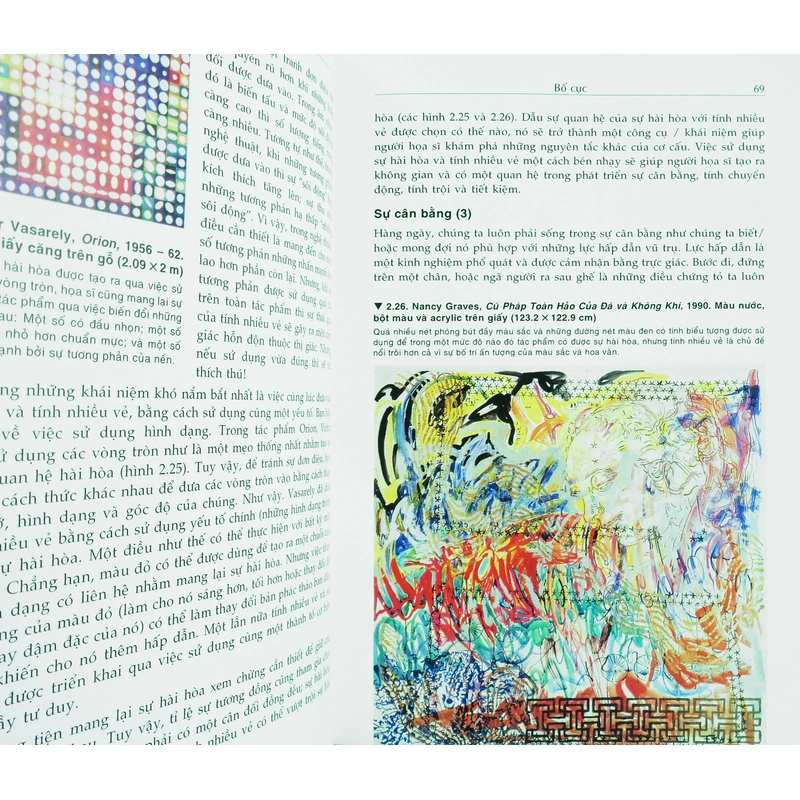 r Vasarely, Orion, 1956 – 62.
giấy căng trên gỗ (2.09 × 2 m)
hài hòa được tạo ra qua việc sử
vòng tròn, họa sĩ cũng mang lại sự
tác phẩm qua việc biến đổi những
au: Một số có đấu nhọn; một số
nhỏ hơn chuẩn mực; và một số
ạnh bởi sự tương phản của nền.
đối được đưa vào. Trong âm
đó là biến tấu và mức độ sôi
càng cao thì số lượng tiếng
càng nhiều. Tương tự như thế
nghệ thuật, khi những tương
được đưa vào thì sự "sôi động"
kích thích tăng lên; sự thu
những tương phản hạ thấp "những
sôi động". Vì vậy, trong nghệ thuật
điều cần thiết là mang đến
số tương phản những nhấn mạnh
lao hơn phần còn lại. Nhưng
tương phản được sử dụng quá
trên toàn tác phẩm thì sự thái
của tính nhiều vẻ sẽ gây ra một cảm
giác hỗn độn thuộc thị giác. Nhưng
nếu sử dụng vừa đúng thì sẽ
thích thú!
ng những khái niệm khó nắm bắt nhất là việc cùng lúc đưa
và tính nhiều vẻ, bằng cách sử dụng cùng một yếu tố. Bạn
về việc sử dụng hình dạng. Trong tác phẩm Orion, Victor
ử dụng các vòng tròn như là một mẹo thống nhất nhằm tạo
quan hệ hài hòa (hình 2.25). Tuy vậy, để tránh sự đơn điệu,
cách thức khác nhau để đưa các vòng tròn vào bằng cách
ở, hình dạng và góc độ của chúng. Như vậy. Vasarely đã
hiều vẻ bằng cách sử dụng yếu tố chính (những hình dạng
ự hài hòa. Một điều như thế có thể thực hiện với bất kỳ
Chẳng hạn, màu đỏ có thể được dùng để tạo ra một chuỗi
h dạng có liên hệ nhằm mang lại sự hài hòa. Nhưng việc
ng của màu đỏ (làm cho nó sáng hơn, tối hơn hoặc thay đổi
ay đậm đặc của nó) có thể làm thay đổi bản phác thảo ban
khiến cho nó thêm hấp dẫn. Một lần nữa tính nhiều vẻ và
được triển khai qua việc sử dụng cùng một thành tố cơ
ầy tư duy.
g tiện mang lại sự hài hòa xem chừng cần thiết để giữ
Tuy vậy, tỉ lệ sự tương đồng cùng tham gia
phải có một cân đối đồng đều; sự hài
nh nhiều vẻ có thể vượt trội sự
Bố cục 69
hòa (các hình 2.25 và 2.26). Dẫu sự quan hệ của sự hài hòa với tính nhiều
vẻ được chọn có thế nào, nó sẽ trở thành một công cụ / khái niệm giúp
người họa sĩ khám phá những nguyên tắc khác của cơ cấu. Việc sử dụng
sự hài hòa và tính nhiều vẻ một cách bén nhạy sẽ giúp người họa sĩ tạo ra
không gian và có một quan hệ trong phát triển sự cân bằng, tính chuyển
động, tính trội và tiết kiệm.
Sự cân bằng (3)
Hàng ngày, chúng ta luôn phải sống trong sự cân bằng như chúng ta biết/
hoặc mong đợi nó phù hợp với những lực hấp dẫn vũ trụ. Lực hấp dẫn là
một kinh nghiệm phổ quát và được cảm nhận bằng trực giác. Bước đi, đứng
trên một chân, hoặc ngã người ra sau ghế là những điều chứng tỏ ta luôn
▼ 2.26. Nancy Graves, Cú Pháp Toàn Hảo Của Đá và Không Khí, 1990. Màu nước,
bột màu và acrylic trên giấy (123.2 × 122.9 cm)
Quá nhiều nét phóng bút đầy màu sắc và những đường nét màu đen có tính biểu tượng được sử
dụng để trong một mức độ nào đó tác phẩm có được sự hài hòa, nhưng tính nhiều vẻ là chủ đề
nổi trội hơn cả vì sự bố trí ấn tượng của màu sắc và hoa văn.